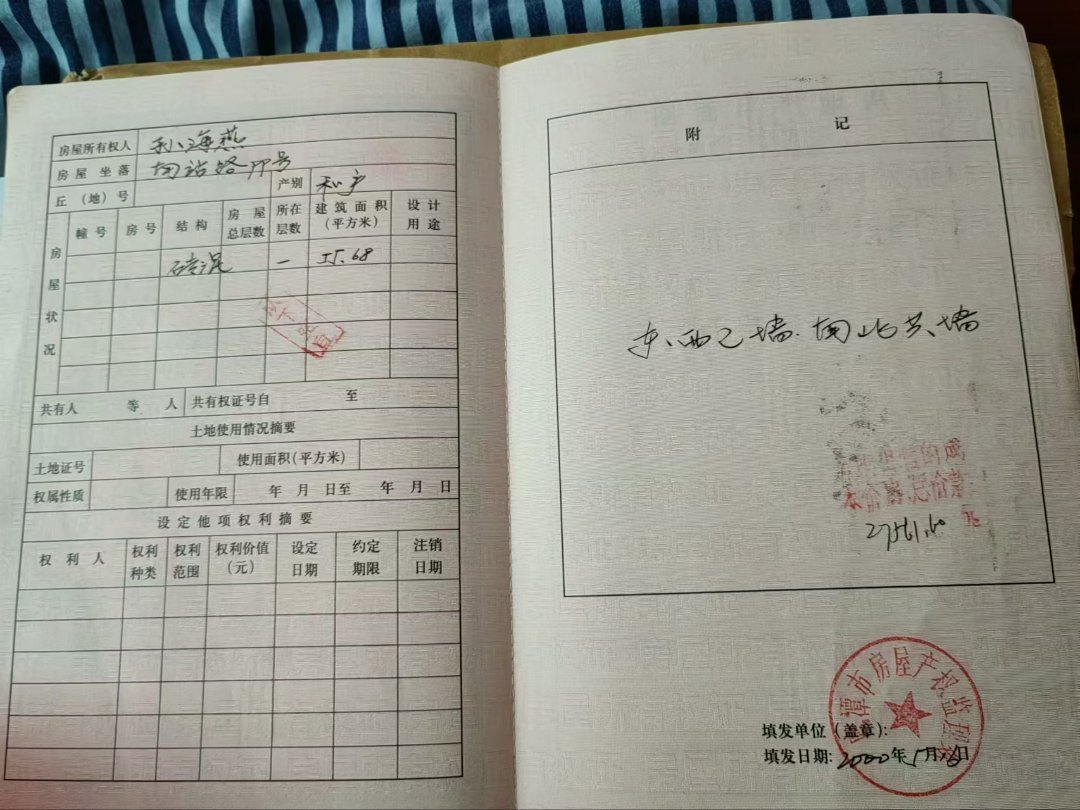 房屋所有权人 孙海燕
房屋坐落
丘（地）号 产别 私产
房屋状况
幢号 房号 结构 房屋总层数 所在层数 建筑面积（平方米） 设计用途
砖混 一 55.68
以下空白
共有人 等 人 共有权证号自 至
土地使用情况摘要
土地证号 使用面积（平方米）
权属性质 使用年限 年 月 日至 年 月 日
设定他项权利摘要
权利人 权利种类 权利范围 权利价值（元） 设定日期 约定期限 注销日期
附 记
东、西己墙．南北共墙
本价格总价款
27561.60 元
潭市房屋产权监理
填发单位（盖章）:
填发日期: 2000年5月 日